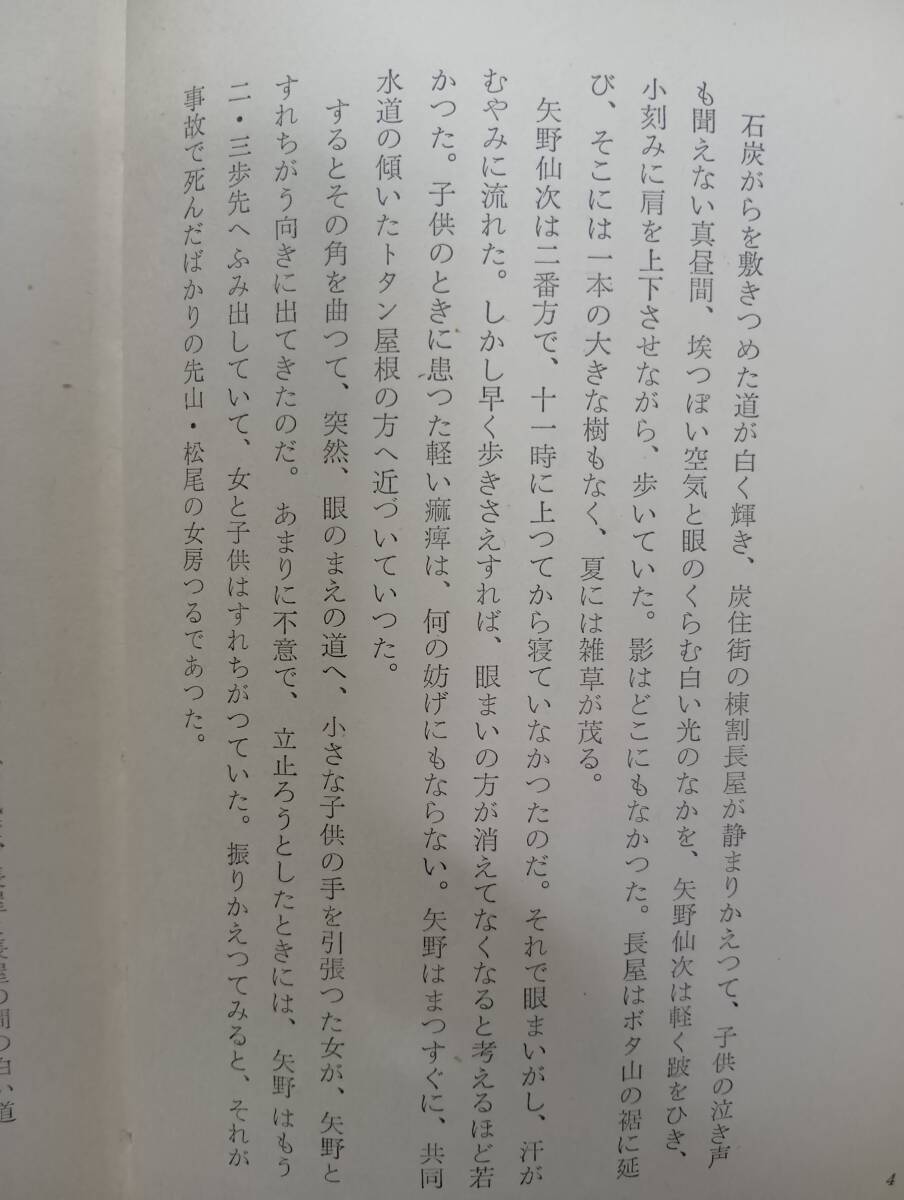 石炭がらを敷きつめた道が白く輝き、炭住街の棟割長屋が静まりかえつて、子供の泣き声
も聞えない真昼間、埃つぽい空気と眼のくらむ白い光のなかを、矢野仙次は軽く跛をひき、
小刻みに肩を上下させながら、歩いていた。影はどこにもなかつた。長屋はボタ山の裾に延
び、そこには一本の大きな樹もなく、夏には雑草が茂る。
矢野仙次は二番方で、十一時に上つてから寝ていなかつたのだ。それで眼まいがし、汗が
むやみに流れた。しかし早く歩きさえすれば、眼まいの方が消えてなくなると考えるほど若
かつた。子供のときに患つた軽い痲痺は、何の妨げにもならない。矢野はまつすぐに、共同
水道の傾いたトタン屋根の方へ近づいていつた。
するとその角を曲つて、突然、眼のまえの道へ、小さな子供の手を引張つた女が、矢野と
すれちがう向きに出てきたのだ。あまりに不意で、立止ろうとしたときには、矢野はもう
二・三歩先へふみ出していて、女と子供はすれちがつていた。振りかえつてみると、それが
事故で死んだばかりの先山・松尾の女房つるであつた。
4
長屋と長屋の間の白い道